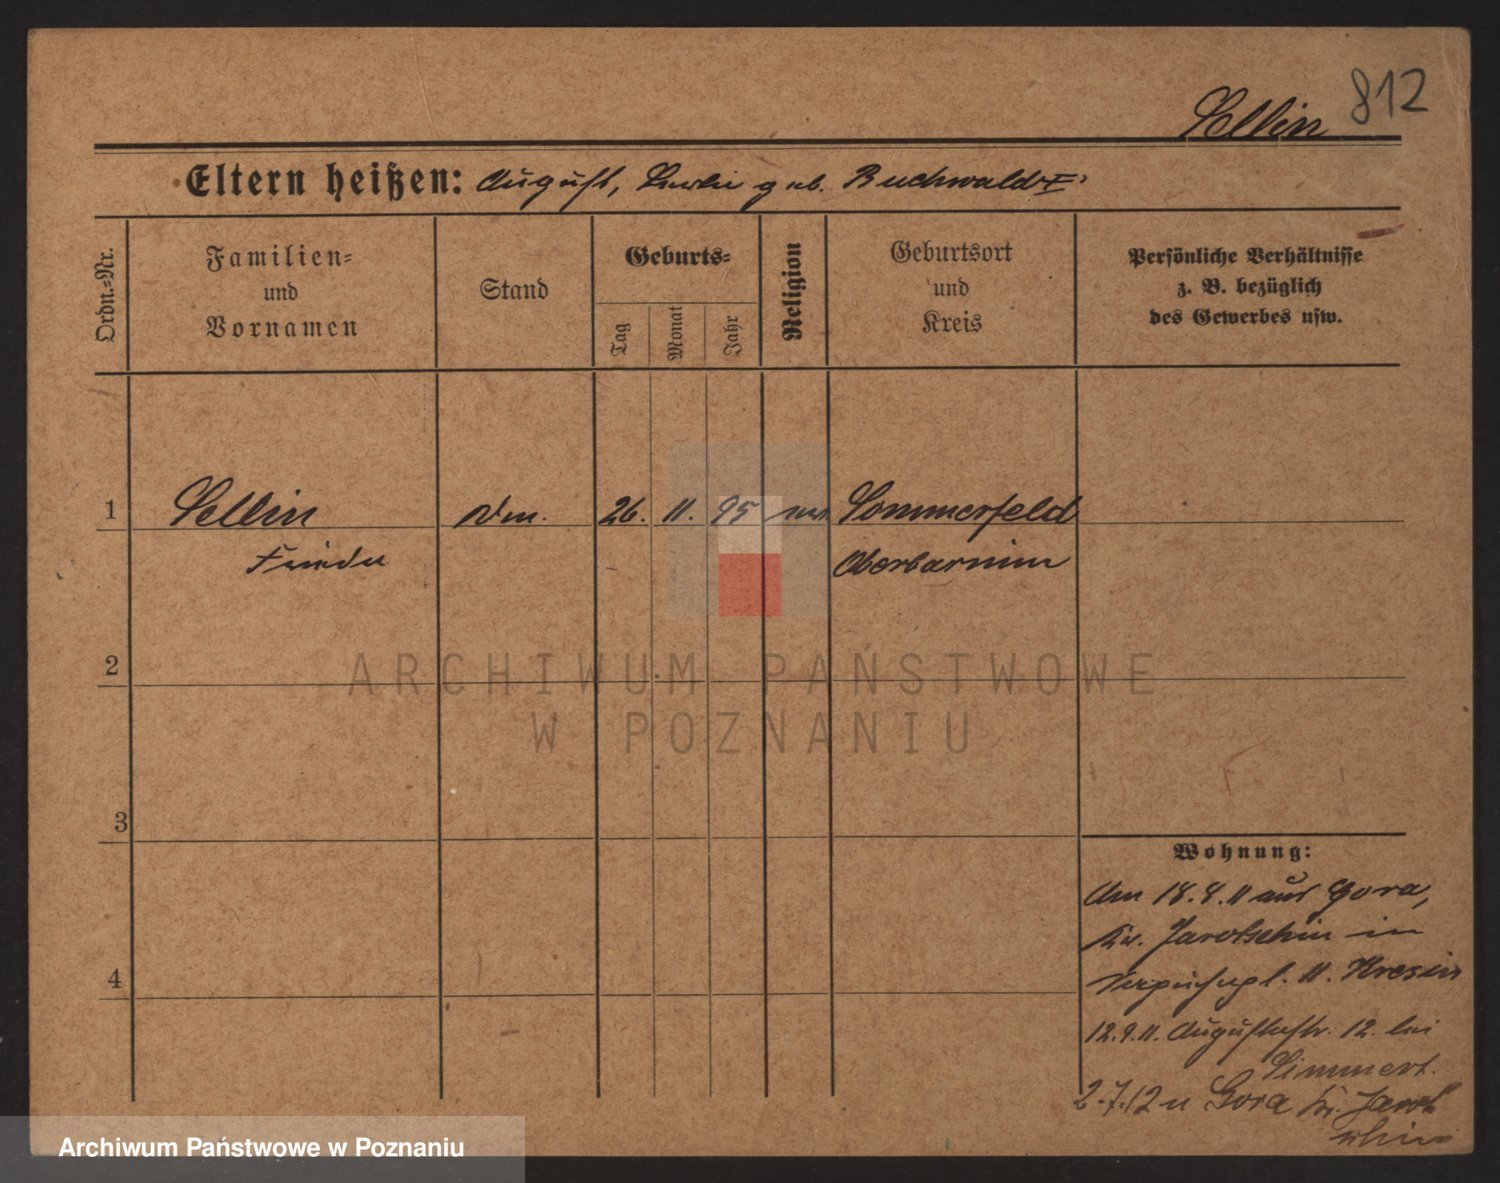 812
Sellin
Eltern heißen: August, geb. Buchwald
Ordn.-Nr.
Familien-
und
Vornamen
Stand
Geburts-
Tag
Monat
Jahr
Religion
Geburtsort
und
Kreis
Persönliche Verhältnisse
z. B. bezüglich
des Gewerbes usw.
1 Sellin 26. 11. 95 Sommerfeld
Frieda Oberbarnim
2
ARCHIWUM PAŃSTWOWE
W POZNANIU
3
Wohnung:
Am 18.8.11 aus Gora,
Kr. Jarotschin in
11.
12.9.11. Augustastr. 12. bei
Simmert.
2.7.12 n Gora Kr. Jarot
schin
4
Archiwum Państwowe w Poznaniu